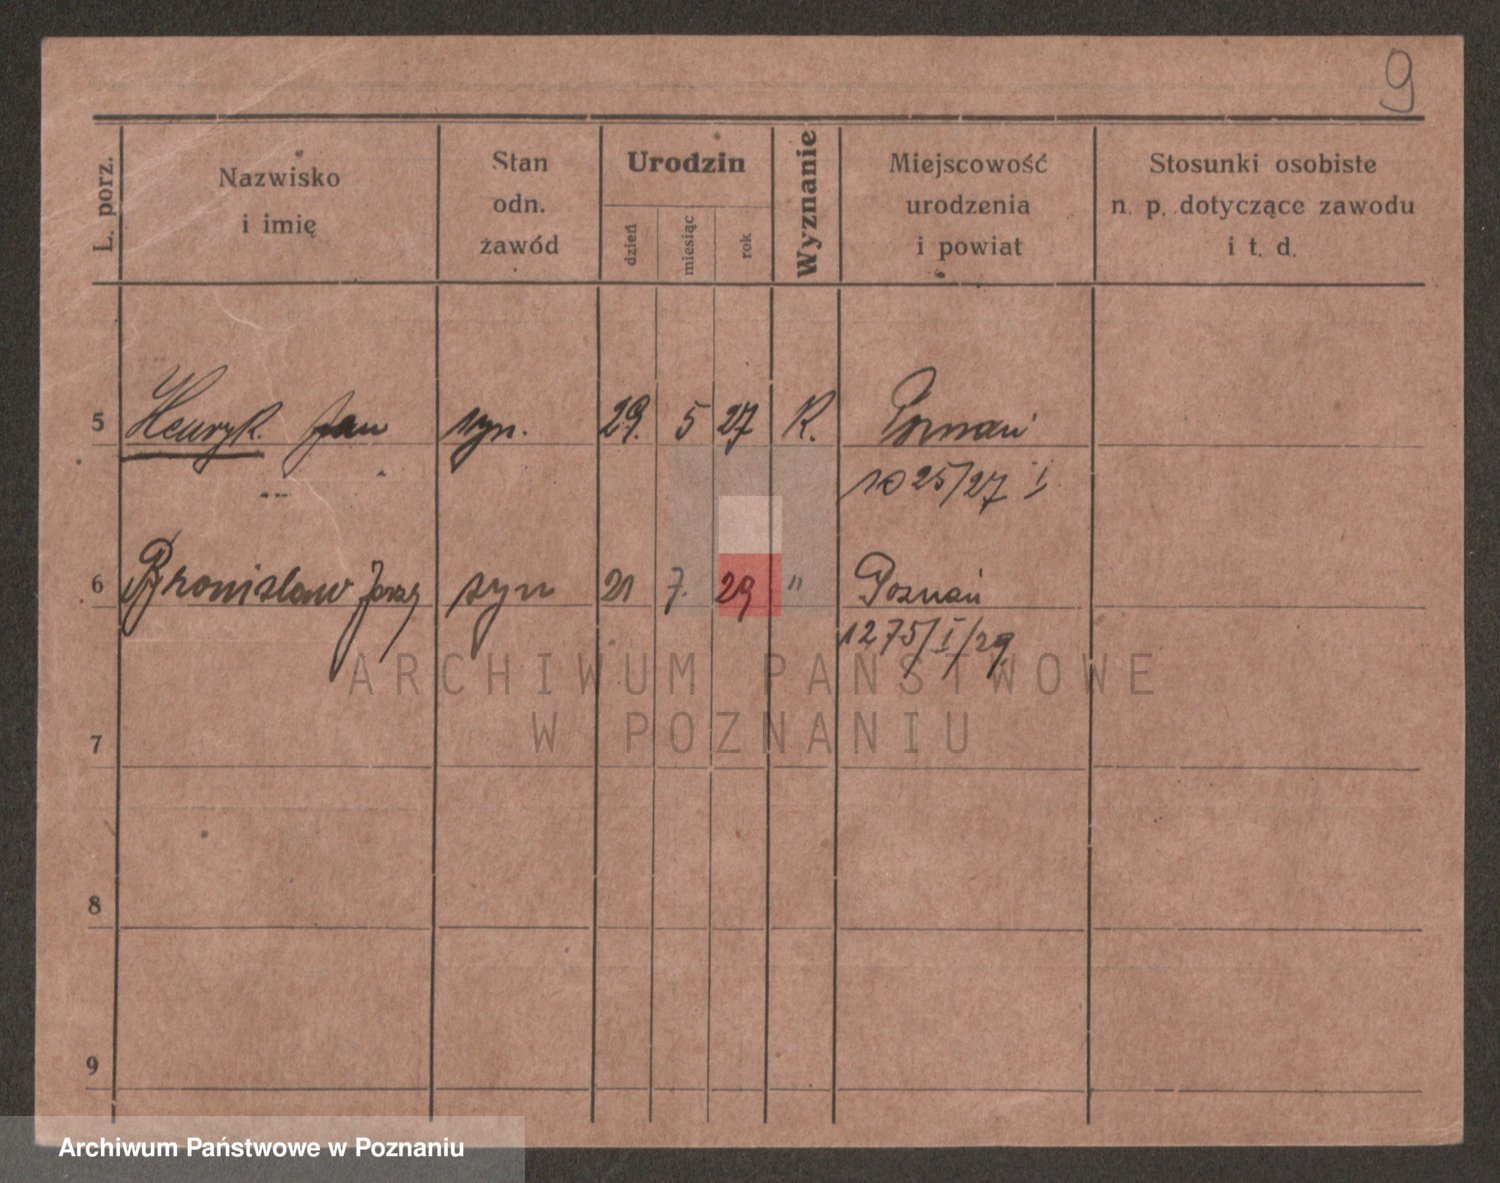 9
L. porz.
Nazwisko
i imię
Stan
odn.
zawód
Urodzin
dzień
miesiąc
rok
Wyznanie
Miejscowość
urodzenia
i powiat
Stosunki osobiste
n. p. dotyczące zawodu
i t. d.
5 Henryk Jan syn. 29. 5 27 R. Poznań
1025/27 I
6 Bronislaw Jerzy syn 21 7. 29 " Poznań
1275/I/29
ARCHIWUM PAŃSTWOWE
W POZNANIU
7
8
9
Archiwum Państwowe w Poznaniu